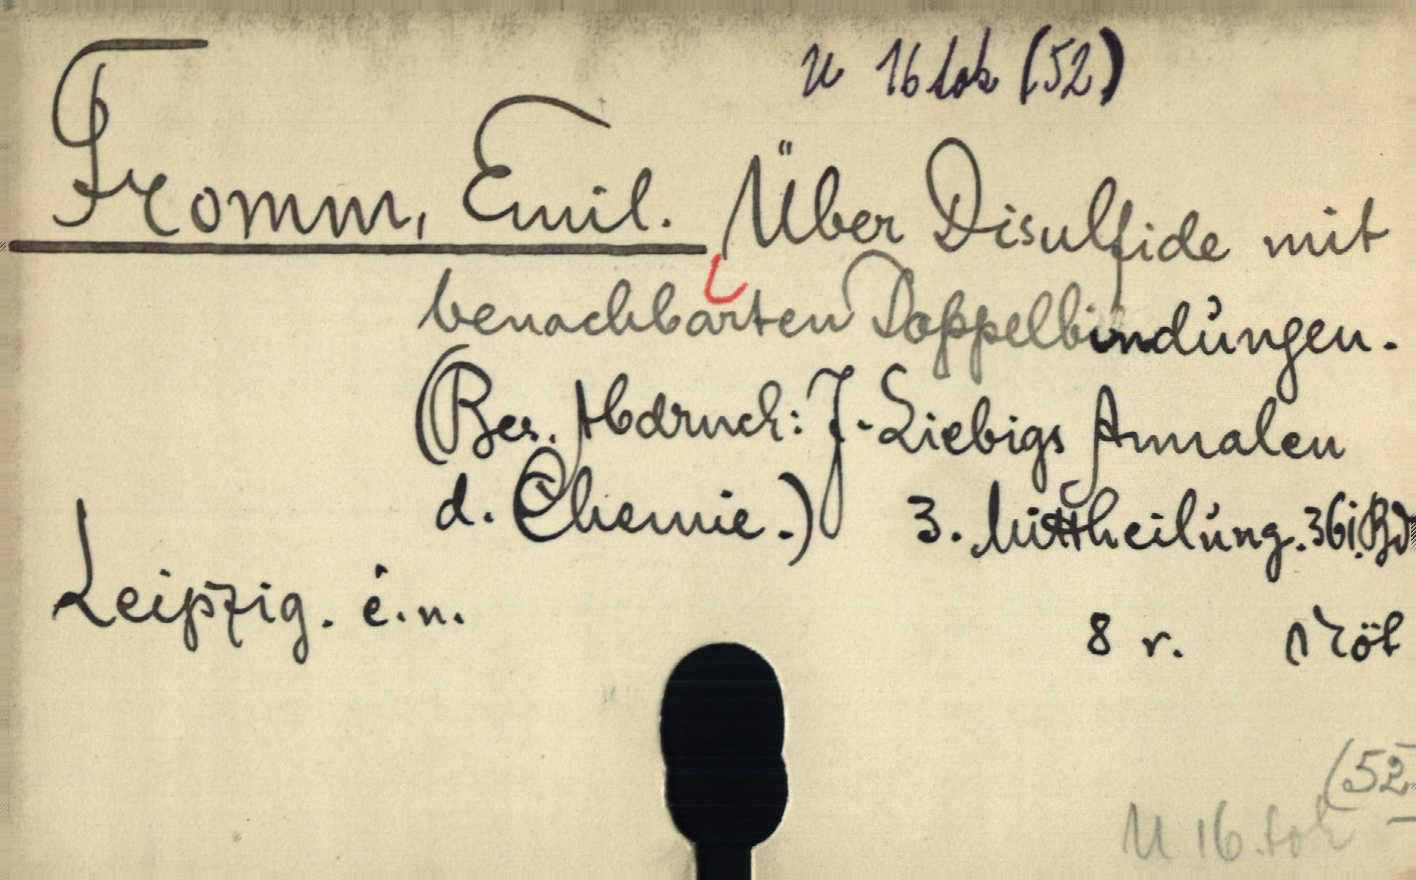 U 16 tok (52)
Fromm, Emil. Über Disulfide mit
benachbarten Doppelbindungen.
(Bes. Abdruck: J. Liebigs Annalen
d. Chemie.) 3. Mittheilung. 361. Bd
Leipzig. é. n.
8 r.
(52
U 16. tok